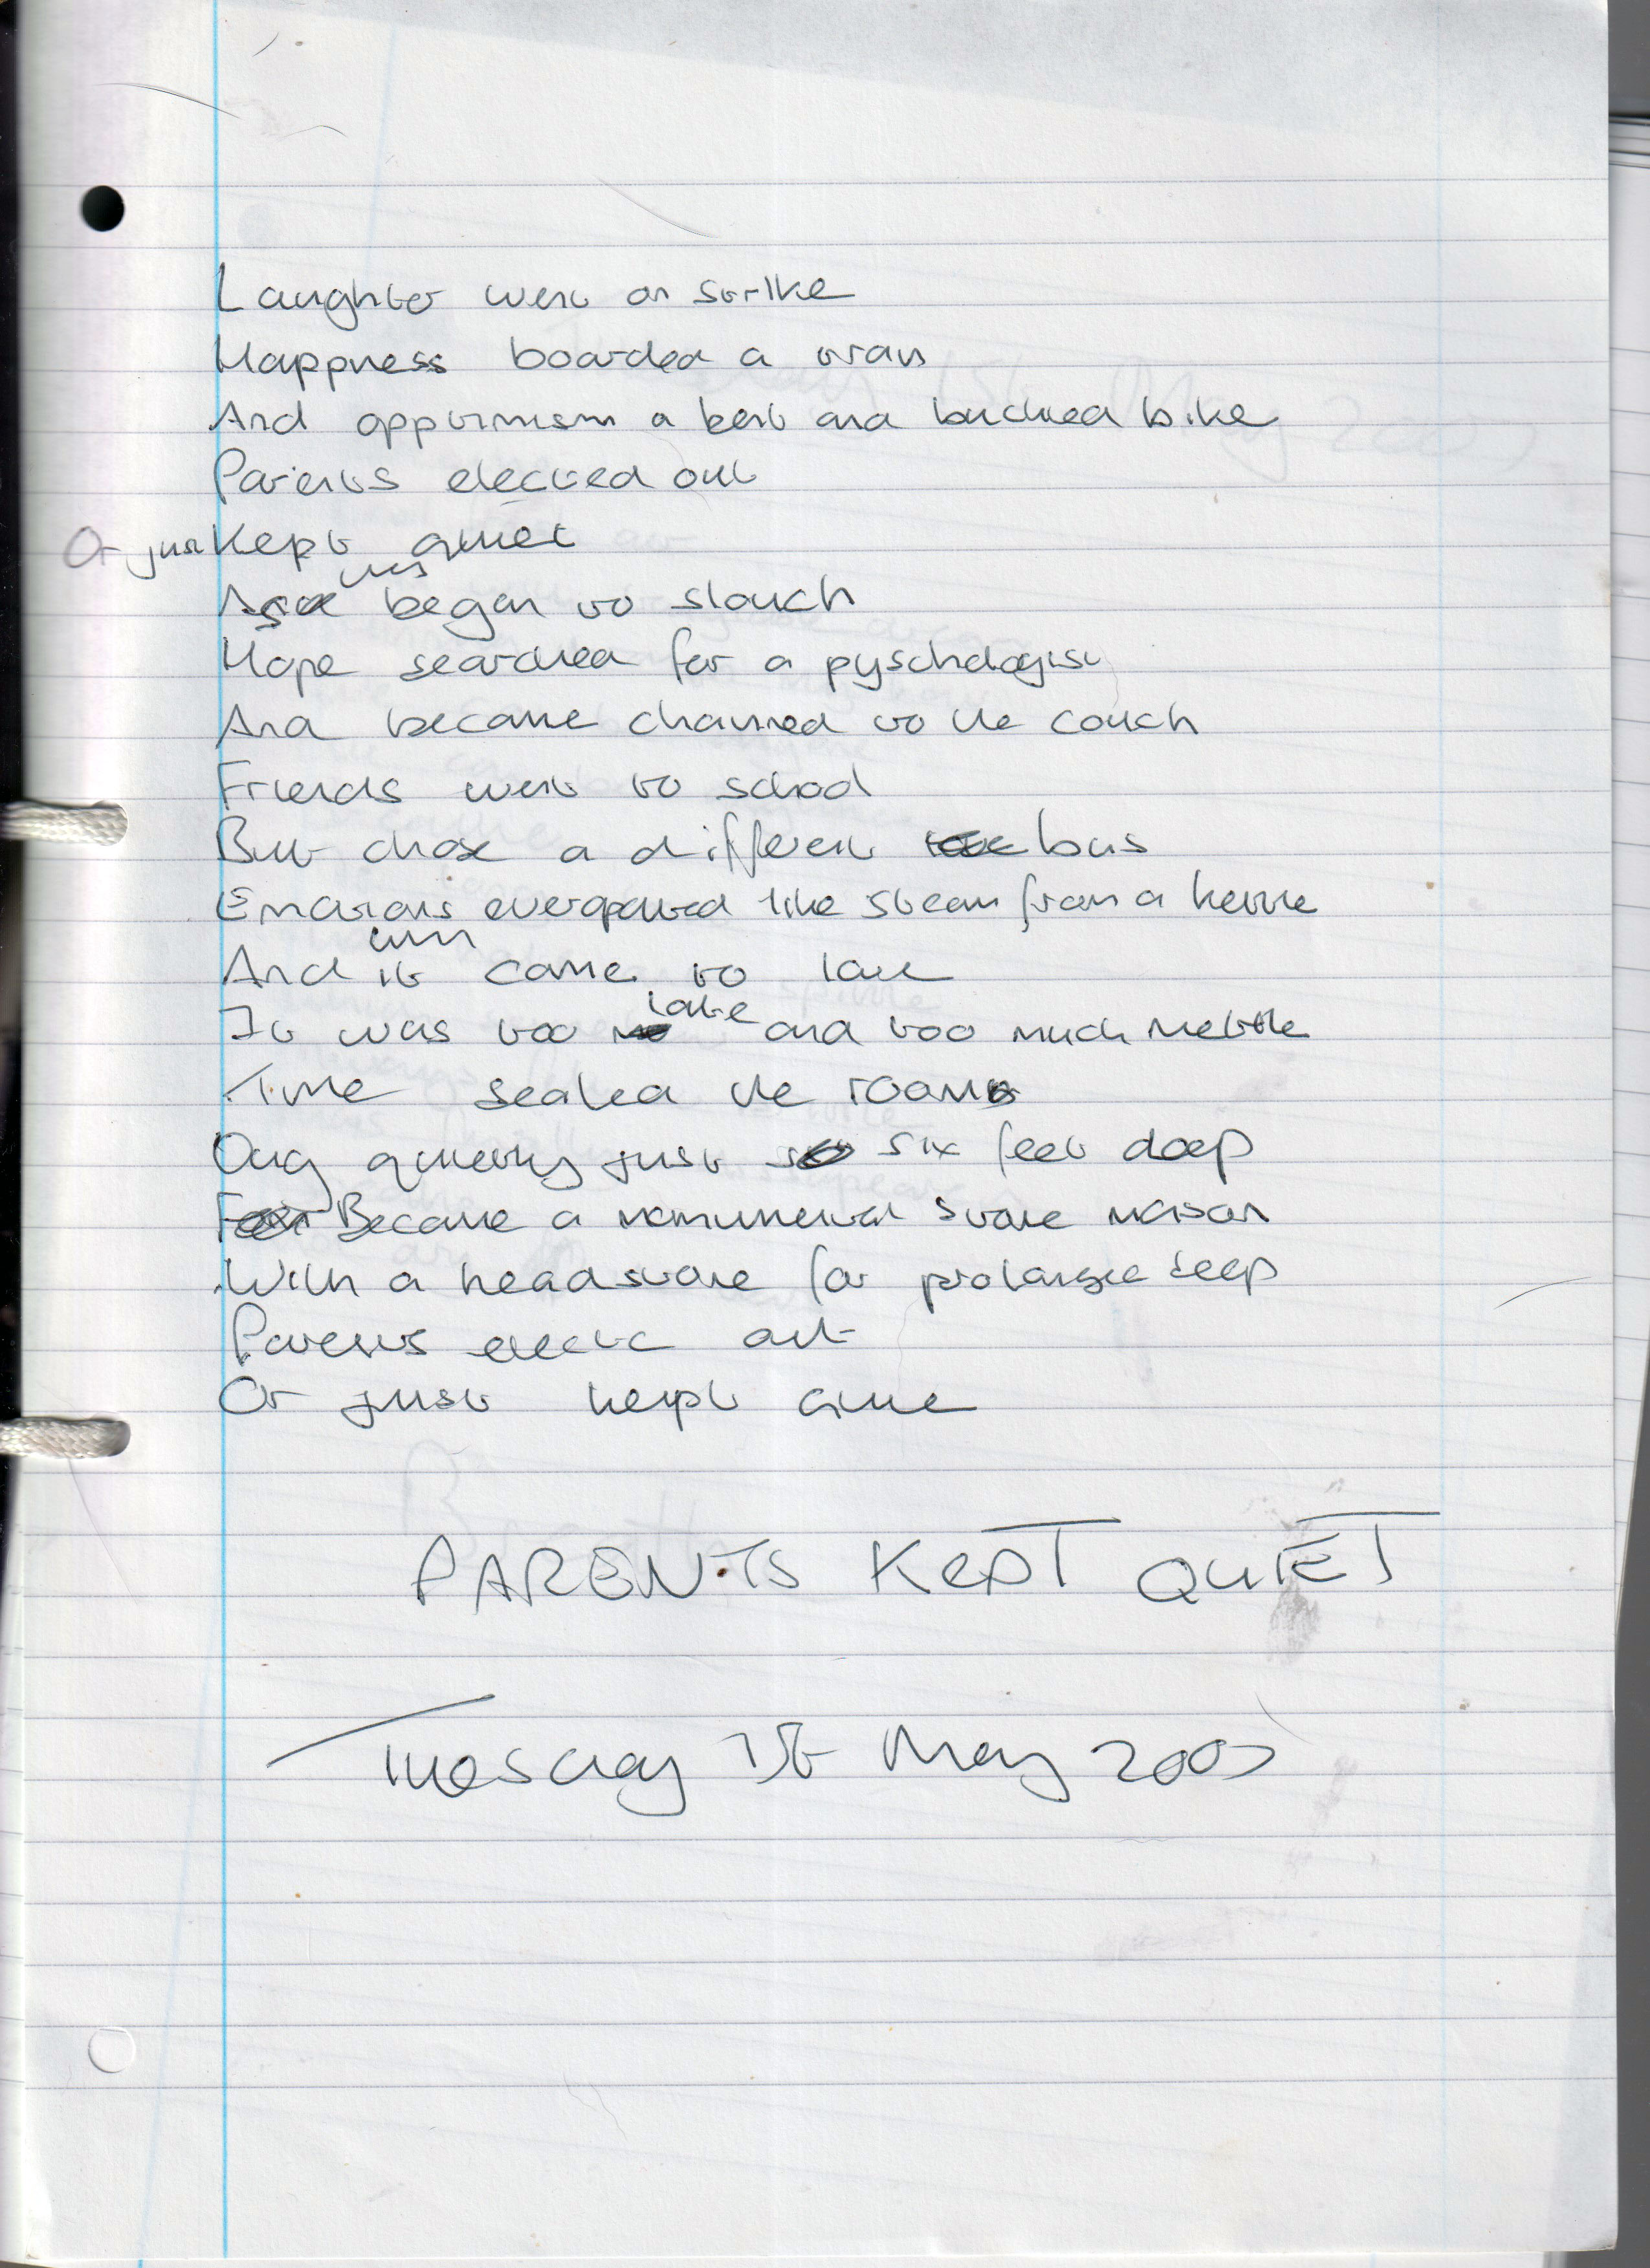 Laughter went on strike
Happness boarded a train
And opptimism a bent and buckled bike
Parents elected out
Or just Kept quiet
As began to slouch
Hope searched for a pyschologist
And became chained to the couch
Friends went to school
But chose a different bus
Emotions evaporated like steam from a kettle
And it came to
It was too late and too much mettle
Time sealed the room
Dug quietly just six feet deep
Became a monumental stone mason
With a headstone for
Parents elect out
Or just kept quiet
PARENTS KEPT QUIET
Tuesday 1st May 2007